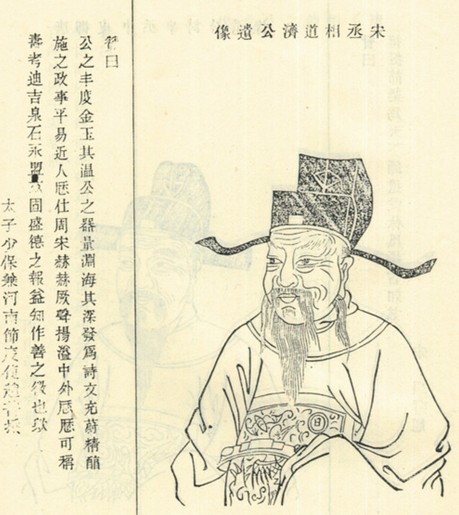 宋丞相道濟公遺像
贊曰
公之丰度金玉其溫公之器量淵海其深發爲詩文充蔚精醇
施之政事平易近人厯仕周宋赫赫厥聲揚溢中外厯厯可稱
壽考迪吉泉石永盟固盛德之報益知作善之徵也歟
太子少保兼河南節度使趙普